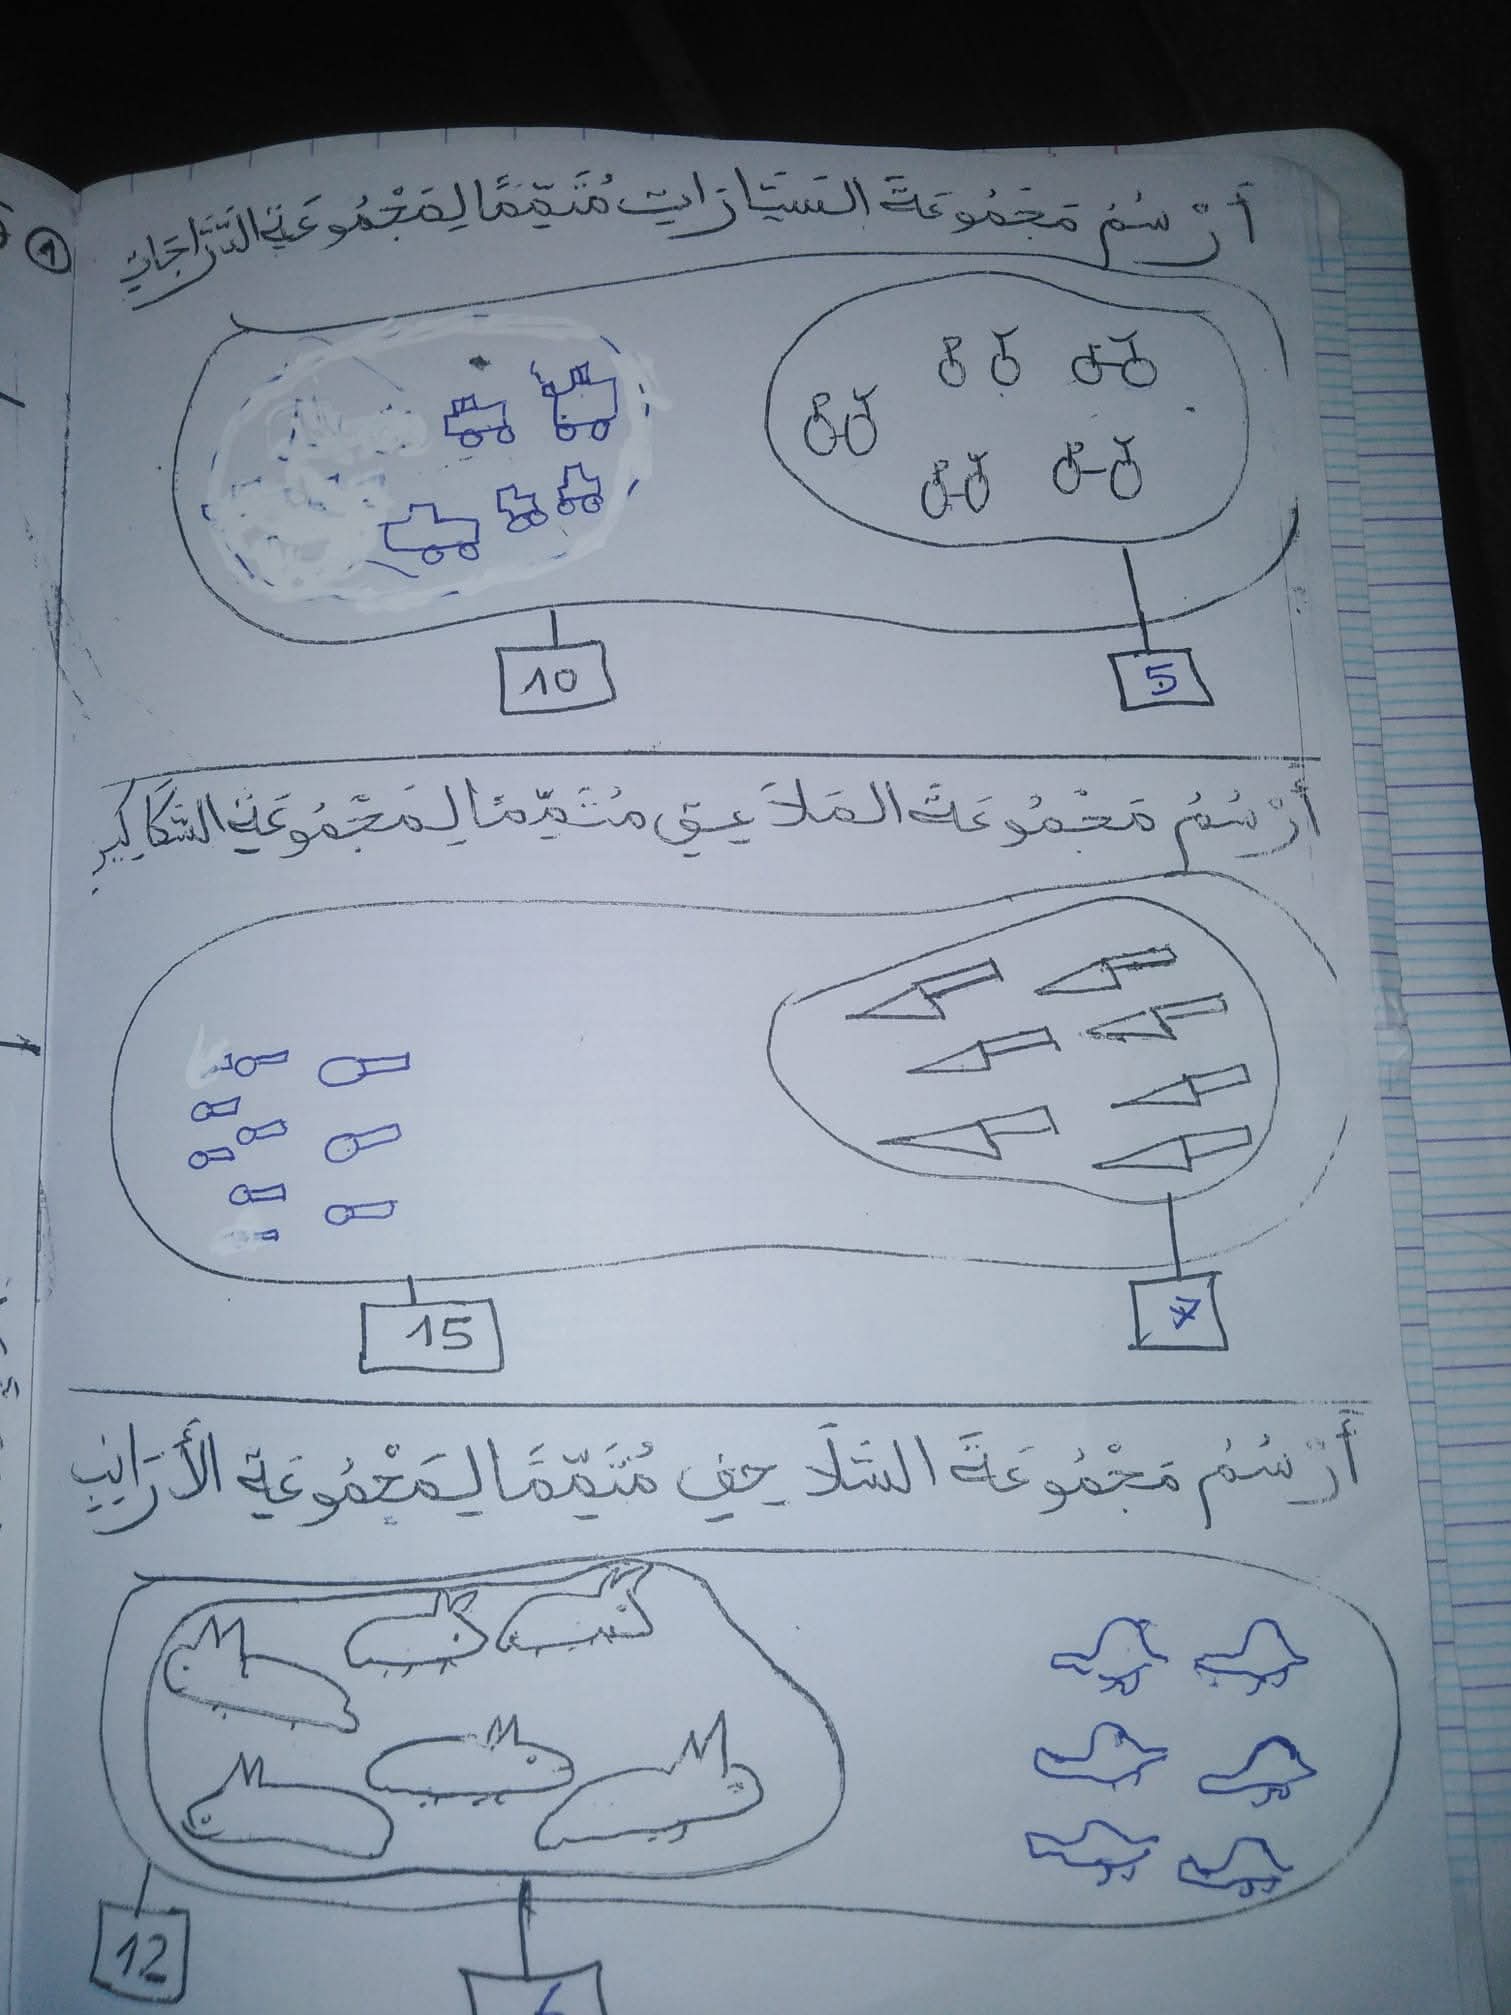 أَرْسُمُ مَجْمُوعَةَ السَيَّارَاتِ مُتَمِّمًا لِمَجْمُوعَةِ الدَّرَّاجَاتِ
1
10
5
أَرْسُمُ مَجْمُوعَةَ المَلاَعِقِ مُتَمِّمًا لِمَجْمُوعَةِ السَّكَاكِينِ
15
7
أَرْسُمُ مَجْمُوعَةَ السَّلَاحِفِ مُتَمِّمًا لِمَجْمُوعَةِ الأَرَانِبِ
12
6